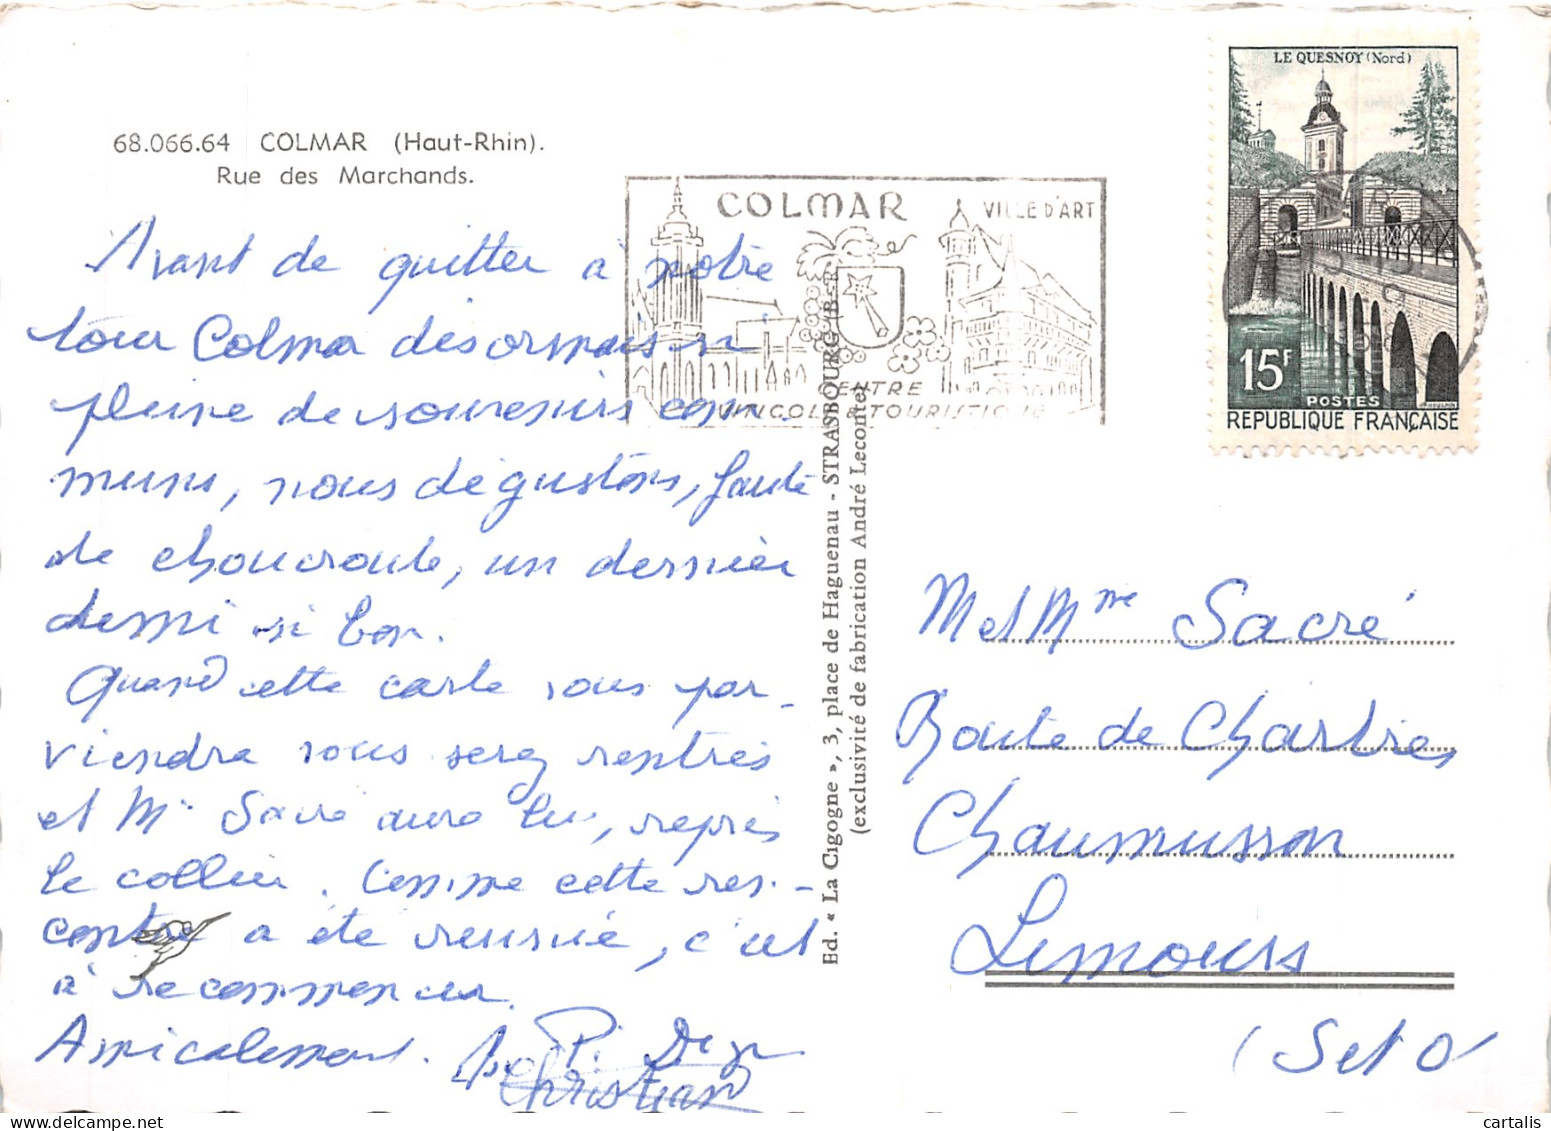 68.066.64 COLMAR (Haut-Rhin).
Rue des Marchands.
COLMAR
VILLE D'ART
CENTRE
VINICOLE & TOURISTIQUE
LE QUESNOY (Nord)
15F
POSTES
RÉPUBLIQUE FRANÇAISE
Avant de quitter à notre
tour Colmar désormais si
pleine de souvenirs com-
muns, nous dégustons, faute
de choucroute, un dernier
demi si bon.
Quand cette carte vous par-
viendra vous serez rentrés
et Mr Sacré aura lui, repris
le collier. Comme cette ren-
contre a été réussie, c'est
à recommencer.
Amicalement.
Christian
Ed. « La Cigogne », 3, place de Haguenau - STRASBOURG (B-R
(exclusivité de fabrication André Leconte)
M et Mme Sacré
Route de Chartres
Chaumusson
Limours
(S et O
delcampe.net
cartalis